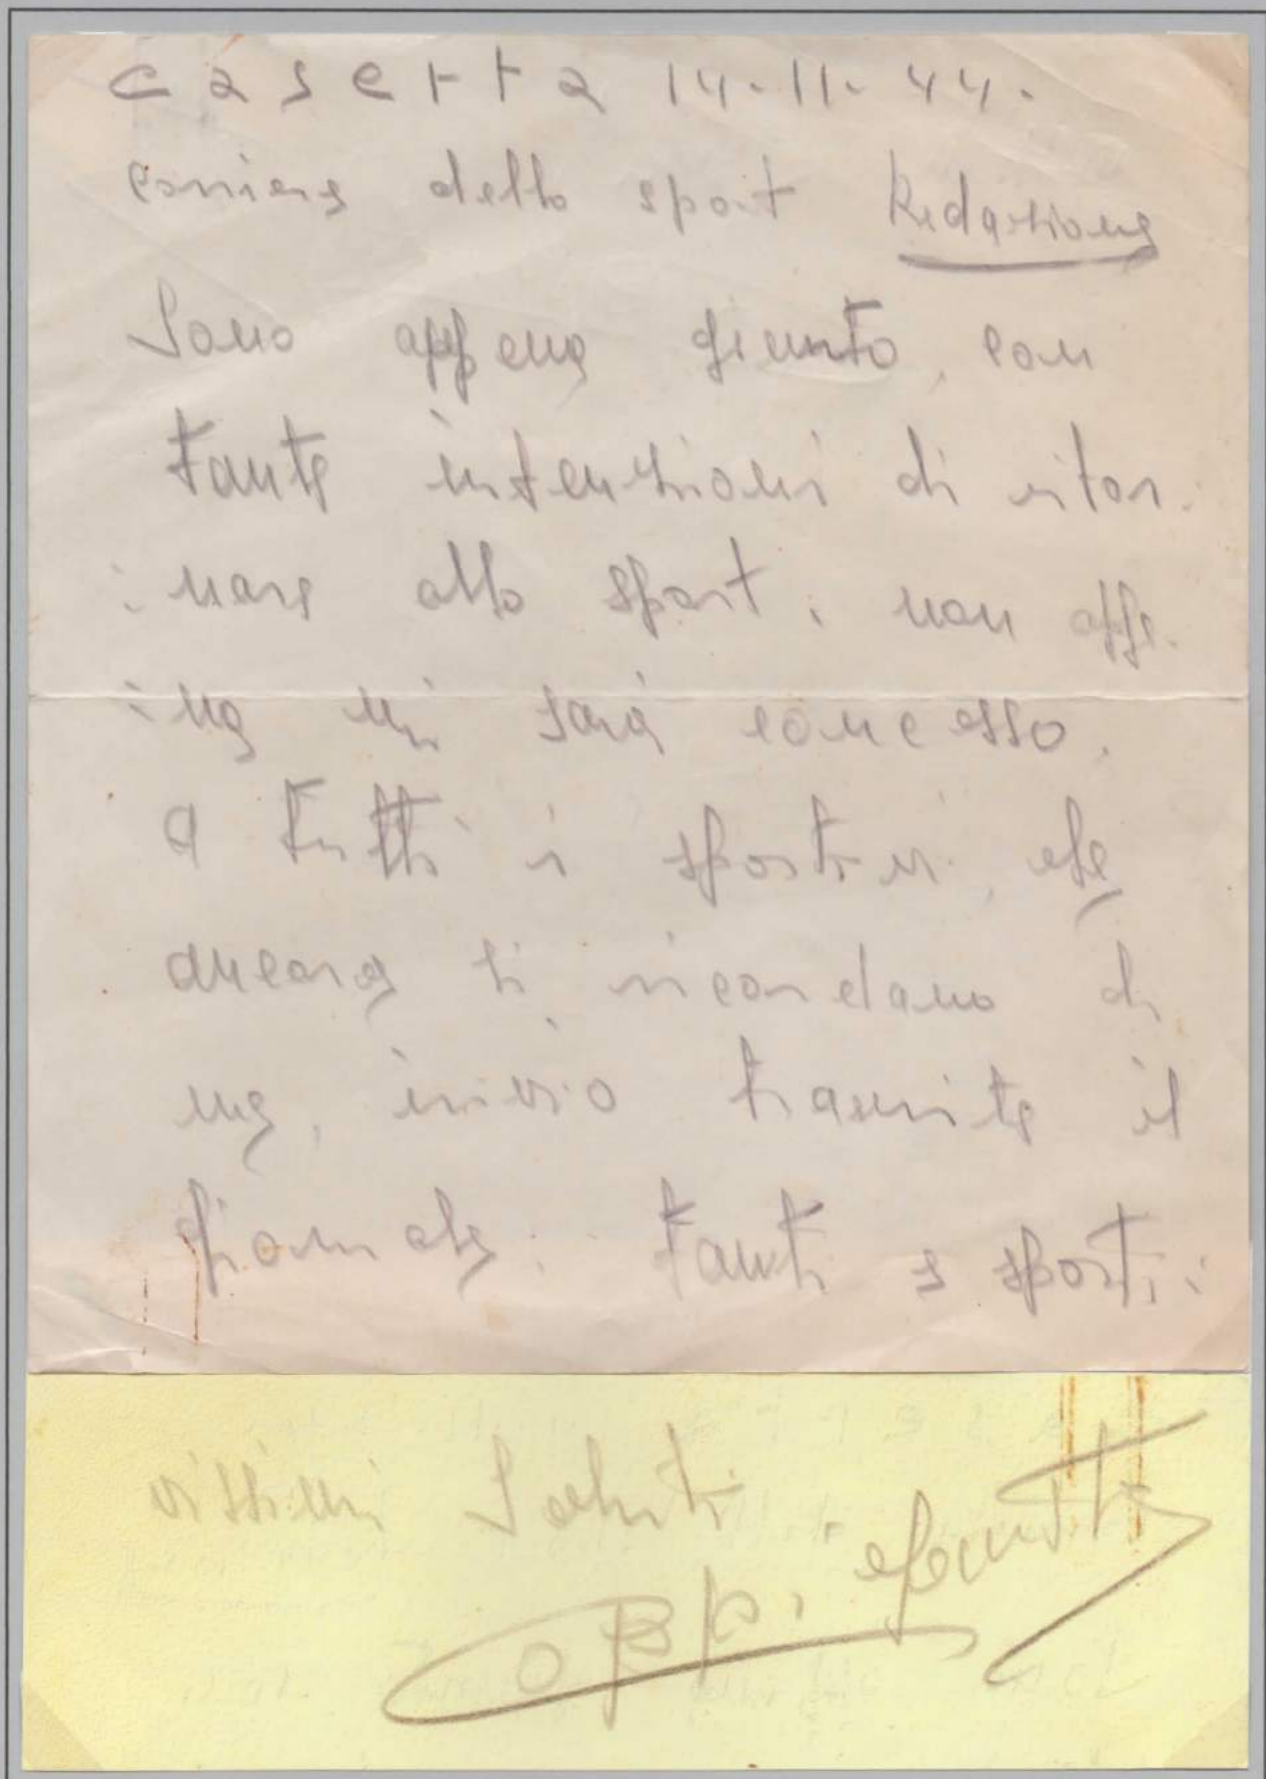 Caserta 14.11.44.
Corriere dello sport Redazione
Sono appena giunto, con
tante intenzioni di ritor.
: nare allo sport, non appe.
: na mi sarà concesso,
a tutti i sportivi, che
ancora si ricordano di
me, invio tramite il
giornale. tanti s sporti:
vissimi Saluti.